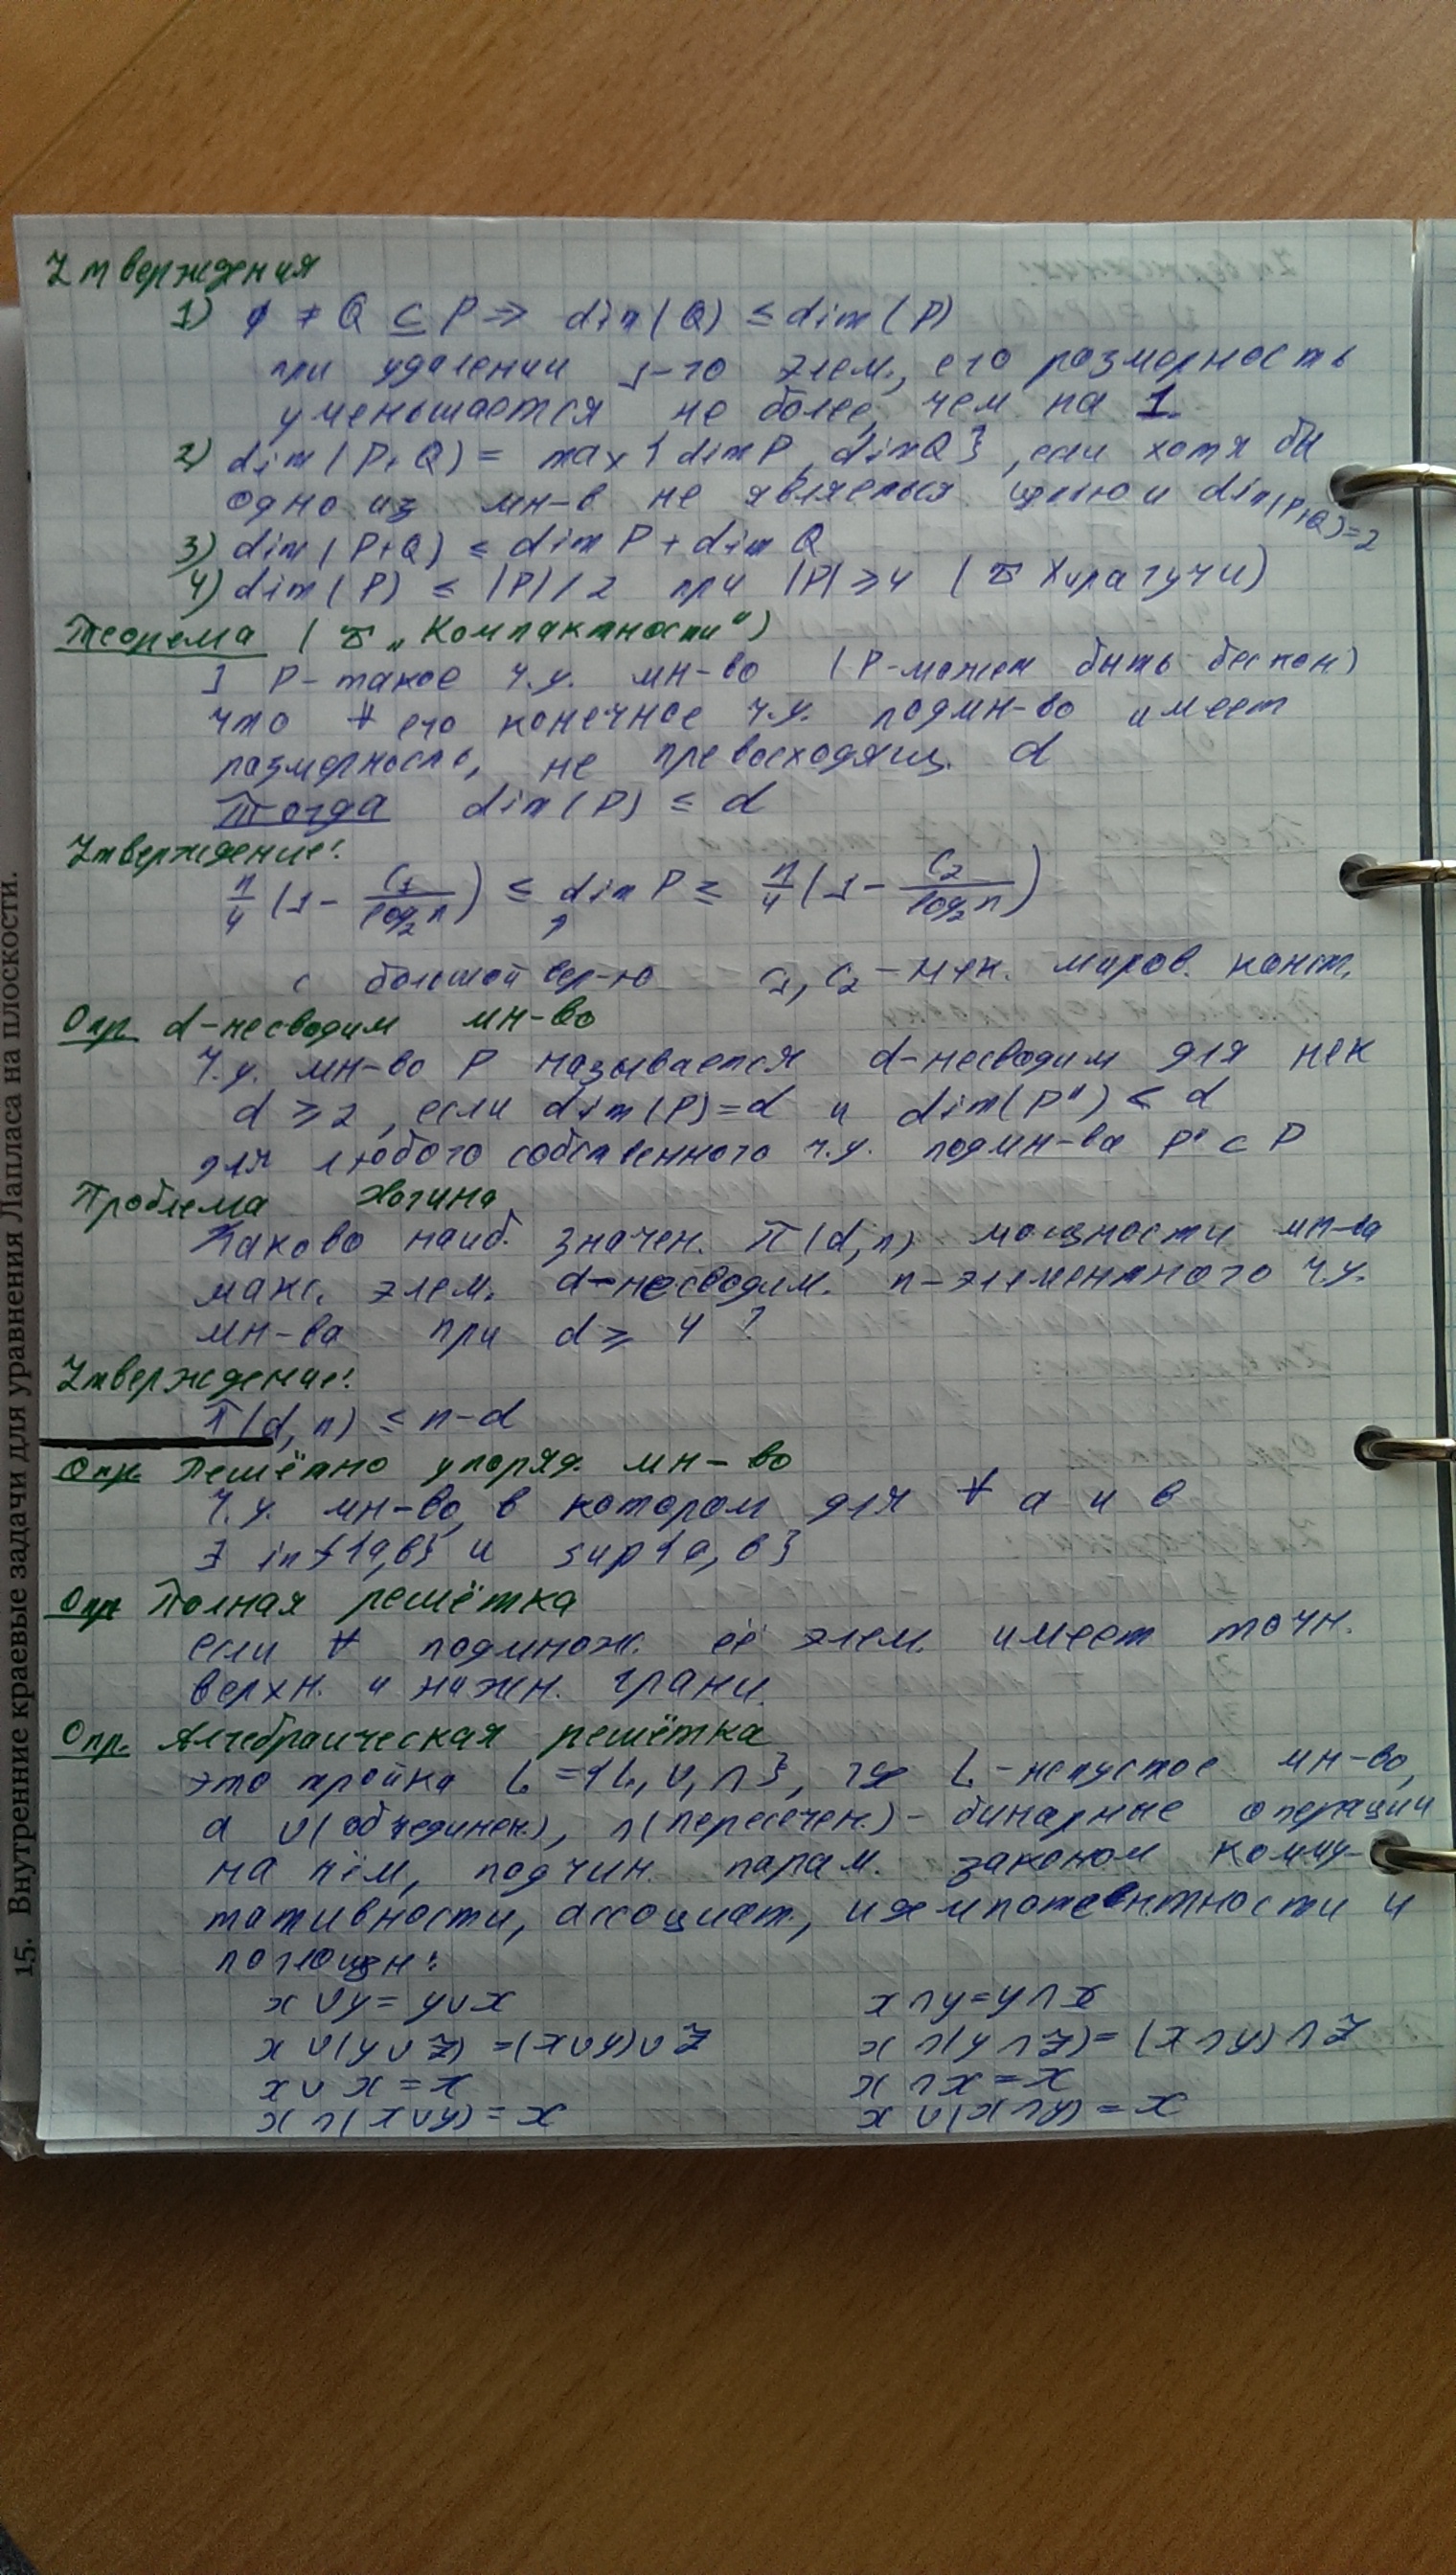 Утверждения
1) ∅ ≠ Q ⊆ P ⇒ dim(Q) ≤ dim(P)
при удалении 1-го элем., его размерность
уменьшается не более, чем на 1
2) dim(P+Q) = max{dimP, dimQ}, если хотя бы
одно из мн-в не является цепью и dim(P+Q)=2
3) dim(P+Q) ≤ dim P + dim Q
4) dim(P) ≤ |P|/2 при |P| ≥ 4 (т Хирагучи)
Теорема (т „Компактности")
] P - такое ч.у. мн-во (P-может быть бескон)
что ∀ его конечное ч.у. подмн-во имеет
размерность, не превосходящ. d
Тогда dim(P) ≤ d
Утверждение:
n/4 (1 - C₁/log₂n) ≤ dim P ≤ n/4 (1 - C₂/log₂n)
с большой вер-ю C₁, C₂ - нек. миров. конст.
Опр. d-несводим мн-во
Ч.у. мн-во P называется d-несводим для нек
d ≥ 2, если dim(P)=d и dim(P') < d
для любого собственного ч.у. подмн-ва P' ⊂ P
Проблема Ногина
Каково наиб. значен. π(d,n) мощности мн-ва
макс. элем. d-несводим. n-элементного ч.у.
мн-ва при d ≥ 4 ?
Утверждение:
π(d,n) ≤ n-d
Опр. Решётно упоряд. мн-во
Ч.у. мн-во, в котором для ∀ a и b
∃ inf{a,b} и sup{a,b}
Опр Полная решётка
если ∀ подмнож. её элем. имеет точн.
верхн. и нижн. грани.
Опр. Алгебраическая решётка
это тройка L = {L, ∪, ∩}, где L - непустое мн-во,
а ∪(объединен.), ∩(пересечен.) - бинарные операции
на нём, подчин. парам. законом комму-
тативности, ассоциат., идемпотентности и
поглощен:
x ∪ y = y ∪ x x ∩ y = y ∩ x
x ∪ (y ∪ z) = (x ∪ y) ∪ z x ∩ (y ∩ z) = (x ∩ y) ∩ z
x ∪ x = x x ∩ x = x
x ∩ (x ∪ y) = x x ∪ (x ∩ y) = x
15. Внутренние краевые задачи для уравнения Лапласа на плоскости.